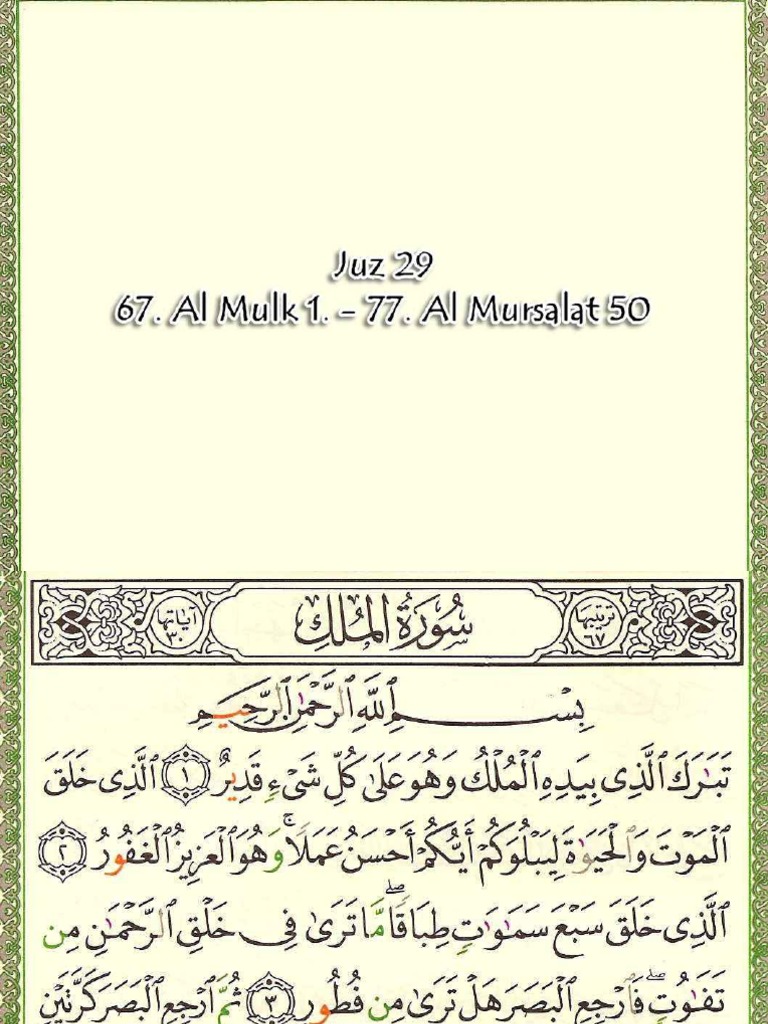 Juz 29
67. Al Mulk 1. - 77. Al Mursalat 50
ترتيبها ٦٧ سُورَةُ الْمُلْكِ آياتها ٣٠
بِسْمِ ٱللَّهِ ٱلرَّحْمَٰنِ ٱلرَّحِيمِ
تَبَٰرَكَ ٱلَّذِى بِيَدِهِ ٱلْمُلْكُ وَهُوَ عَلَىٰ كُلِّ شَىْءٍ قَدِيرٌ ١ ٱلَّذِى خَلَقَ
ٱلْمَوْتَ وَٱلْحَيَوٰةَ لِيَبْلُوَكُمْ أَيُّكُمْ أَحْسَنُ عَمَلًا ۚ وَهُوَ ٱلْعَزِيزُ ٱلْغَفُورُ ٢
ٱلَّذِى خَلَقَ سَبْعَ سَمَٰوَٰتٍ طِبَاقًا ۖ مَّا تَرَىٰ فِى خَلْقِ ٱلرَّحْمَٰنِ مِن
تَفَٰوُتٍ ۖ فَٱرْجِعِ ٱلْبَصَرَ هَلْ تَرَىٰ مِن فُطُورٍ ٣ ثُمَّ ٱرْجِعِ ٱلْبَصَرَ كَرَّتَيْنِ